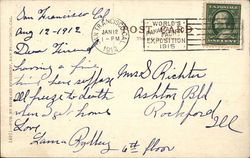 San Francisco Cal
Aug 12-1912
Dear Friend
Having a fine
time but suppose
all freeze to death
when I get home
Love
Laura
POST CARD
SAN FRANCISCO, CAL.
JAN 12
1 - PM
1912
WORLD'S
PANAMA PACIFIC
EXPOSITION
1915
Mrs D Richter
Ashton Bld
Rockford
Ill
6th floor